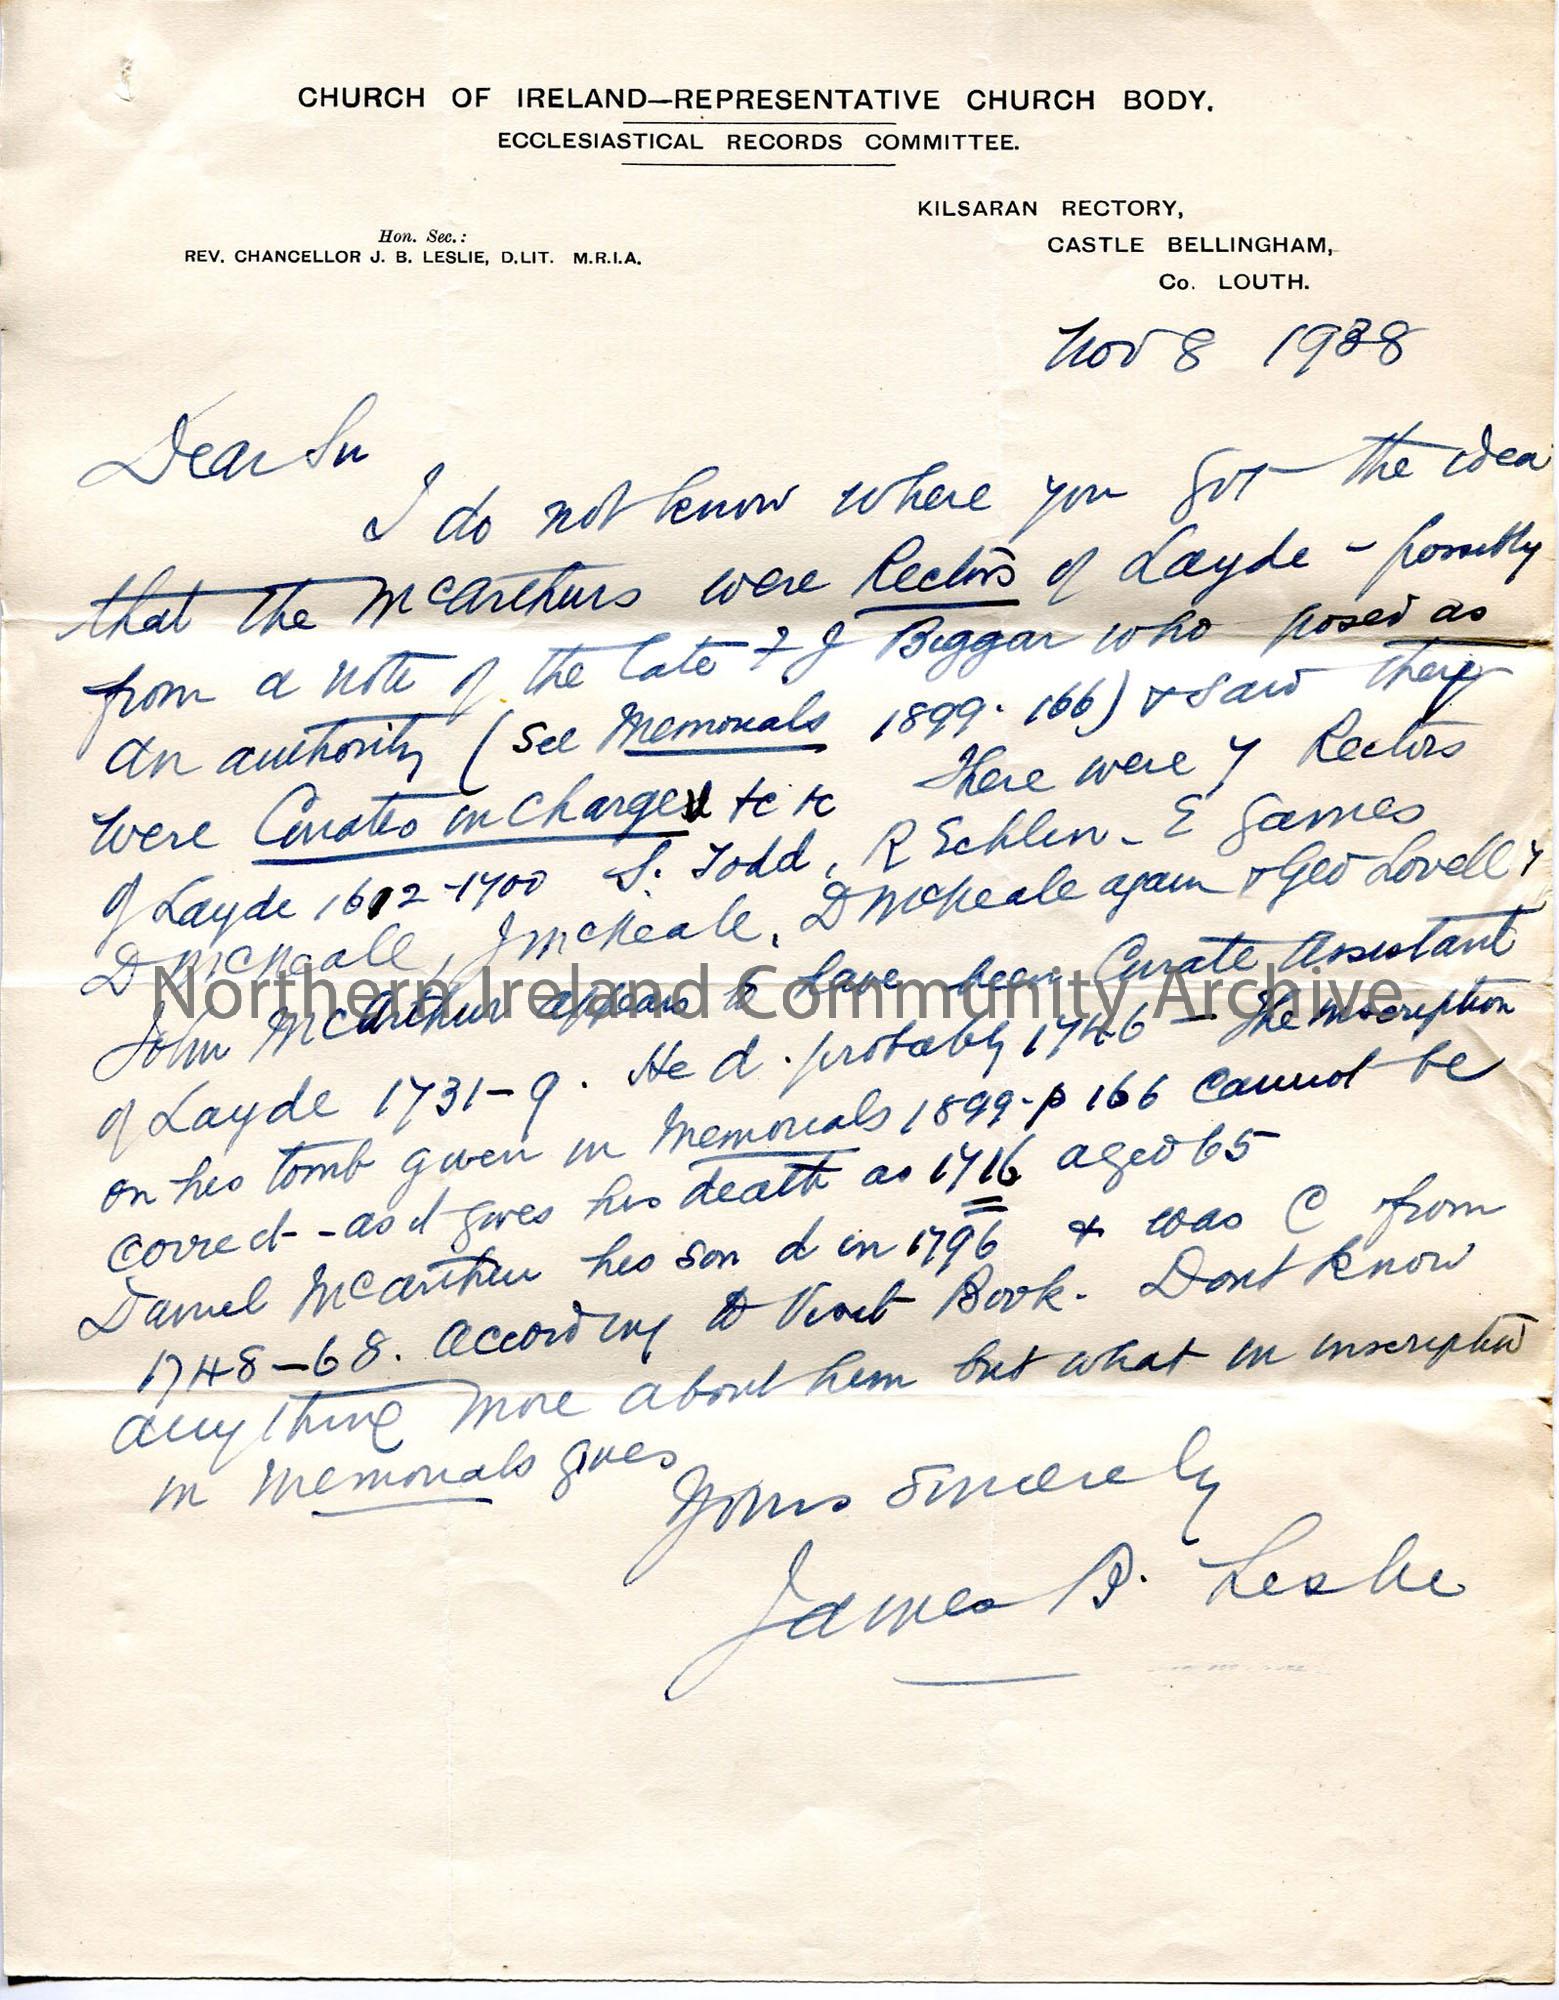 CHURCH OF IRELAND—REPRESENTATIVE CHURCH BODY.
ECCLESIASTICAL RECORDS COMMITTEE.
KILSARAN RECTORY,
CASTLE BELLINGHAM,
Co. LOUTH.
Hon. Sec.:
REV. CHANCELLOR J. B. LESLIE, D.LIT. M.R.I.A.
Nov 8 1938
Dear Sir
I do not know where you got the idea
that the McArthurs were Rectors of Layde - possibly
from a note of the late F J Biggar who posed as
an authority (see Memorials 1899. 166) & said they
were Curates in Charge &c &c There were 7 Rectors
of Layde 1612-1700 S. Todd, R Echlin - E James
D McNeale, J McNeale, D McNeale again & Geo Lovell
John McArthur appears to have been Curate Assistant
of Layde 1731-9. He d. probably 1746 - The inscription
on his tomb given in Memorials 1899-p 166 cannot be
correct - as it gives his death as 1716 aged 65
Daniel McArthur his son d in 1796 & was C from
1748-68. according to Visit Book. Dont know
anything more about him but what in inscription
in Memorials gives
Yours sincerely
James B. Leslie
Northern Ireland Community Archive